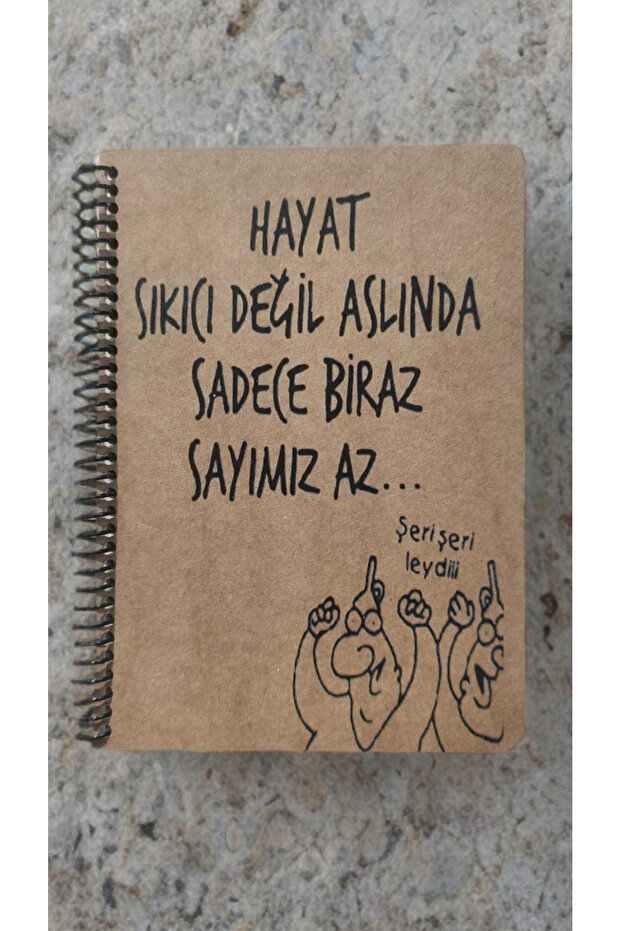 HAYAT
SIKICI DEĞİL ASLINDA
SADECE BİRAZ
SAYIMIZ AZ...
Şeri şeri
leydili